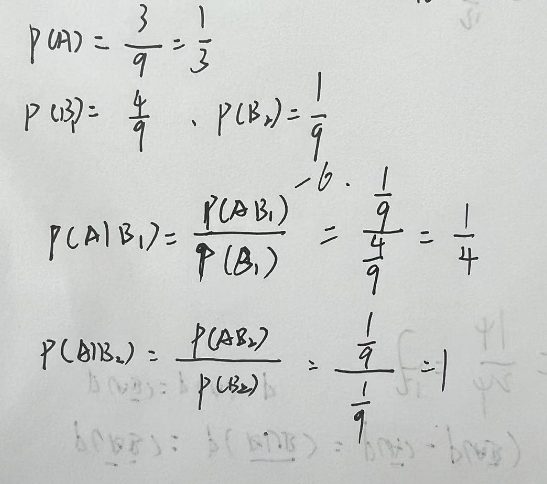 P(A) = 3/9 = 1/3
P(B₁) = 4/9 、 P(B₂) = 1/9
P(A|B₁) = P(AB₁)/P(B₁) = (1/9)/(4/9) = 1/4
P(A|B₂) = P(AB₂)/P(B₂) = (1/9)/(1/9) = 1